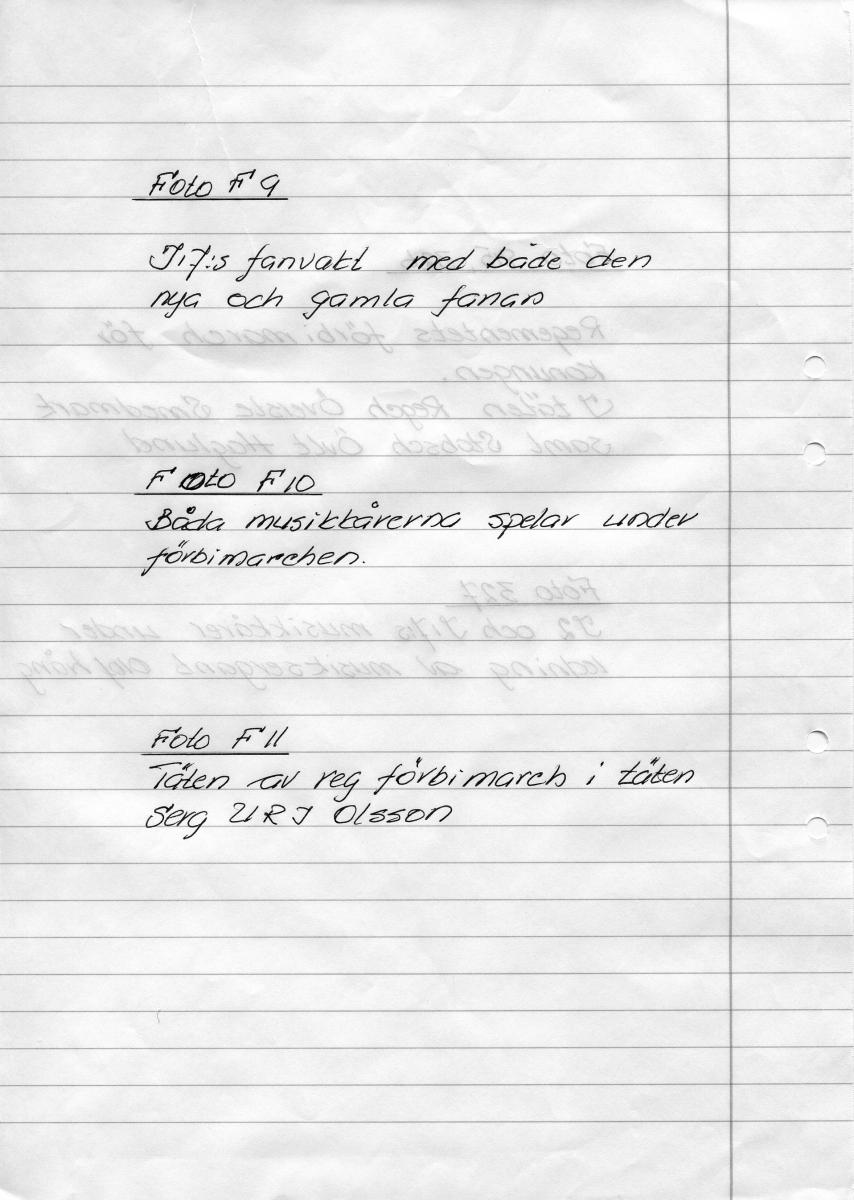 Foto F 9
I17:s fanvakt med både den
nya och gamla fanan
Foto F 10
Båda musikkårerna spelar under
förbimarchen.
Foto F 11
Täten av reg förbimarch i täten
Serg U R I Olsson